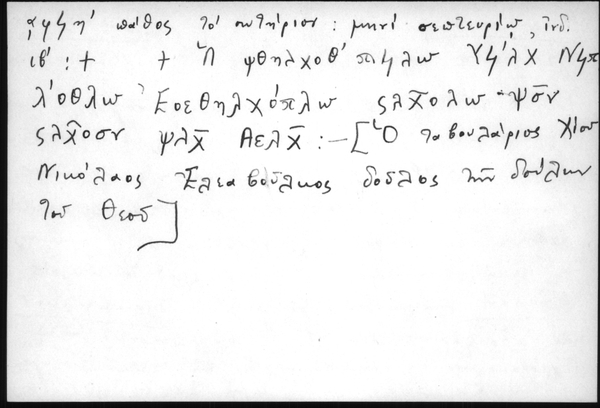 ͵αψϟη΄ πάθος τὸ σωτήριον : μηνὶ σεπτευρίῳ, ἰνδ.
ιβ΄ : + + Ὁ ψθηλχοθ΄ πϟλω Υϟ΄λχ Νϟπ
λ΄οθλω Ἐοεθηλχόπλω ςλχ̅ολω ψσ̅ν
ςλχ̅οσν ψλχ̅ Αελχ̅ : — [Ὁ ταβουλάριος Χίου
Νικόλαος Ἐλεαβοῦλκος δοῦλος τῶν δούλων
τοῦ Θεοῦ]